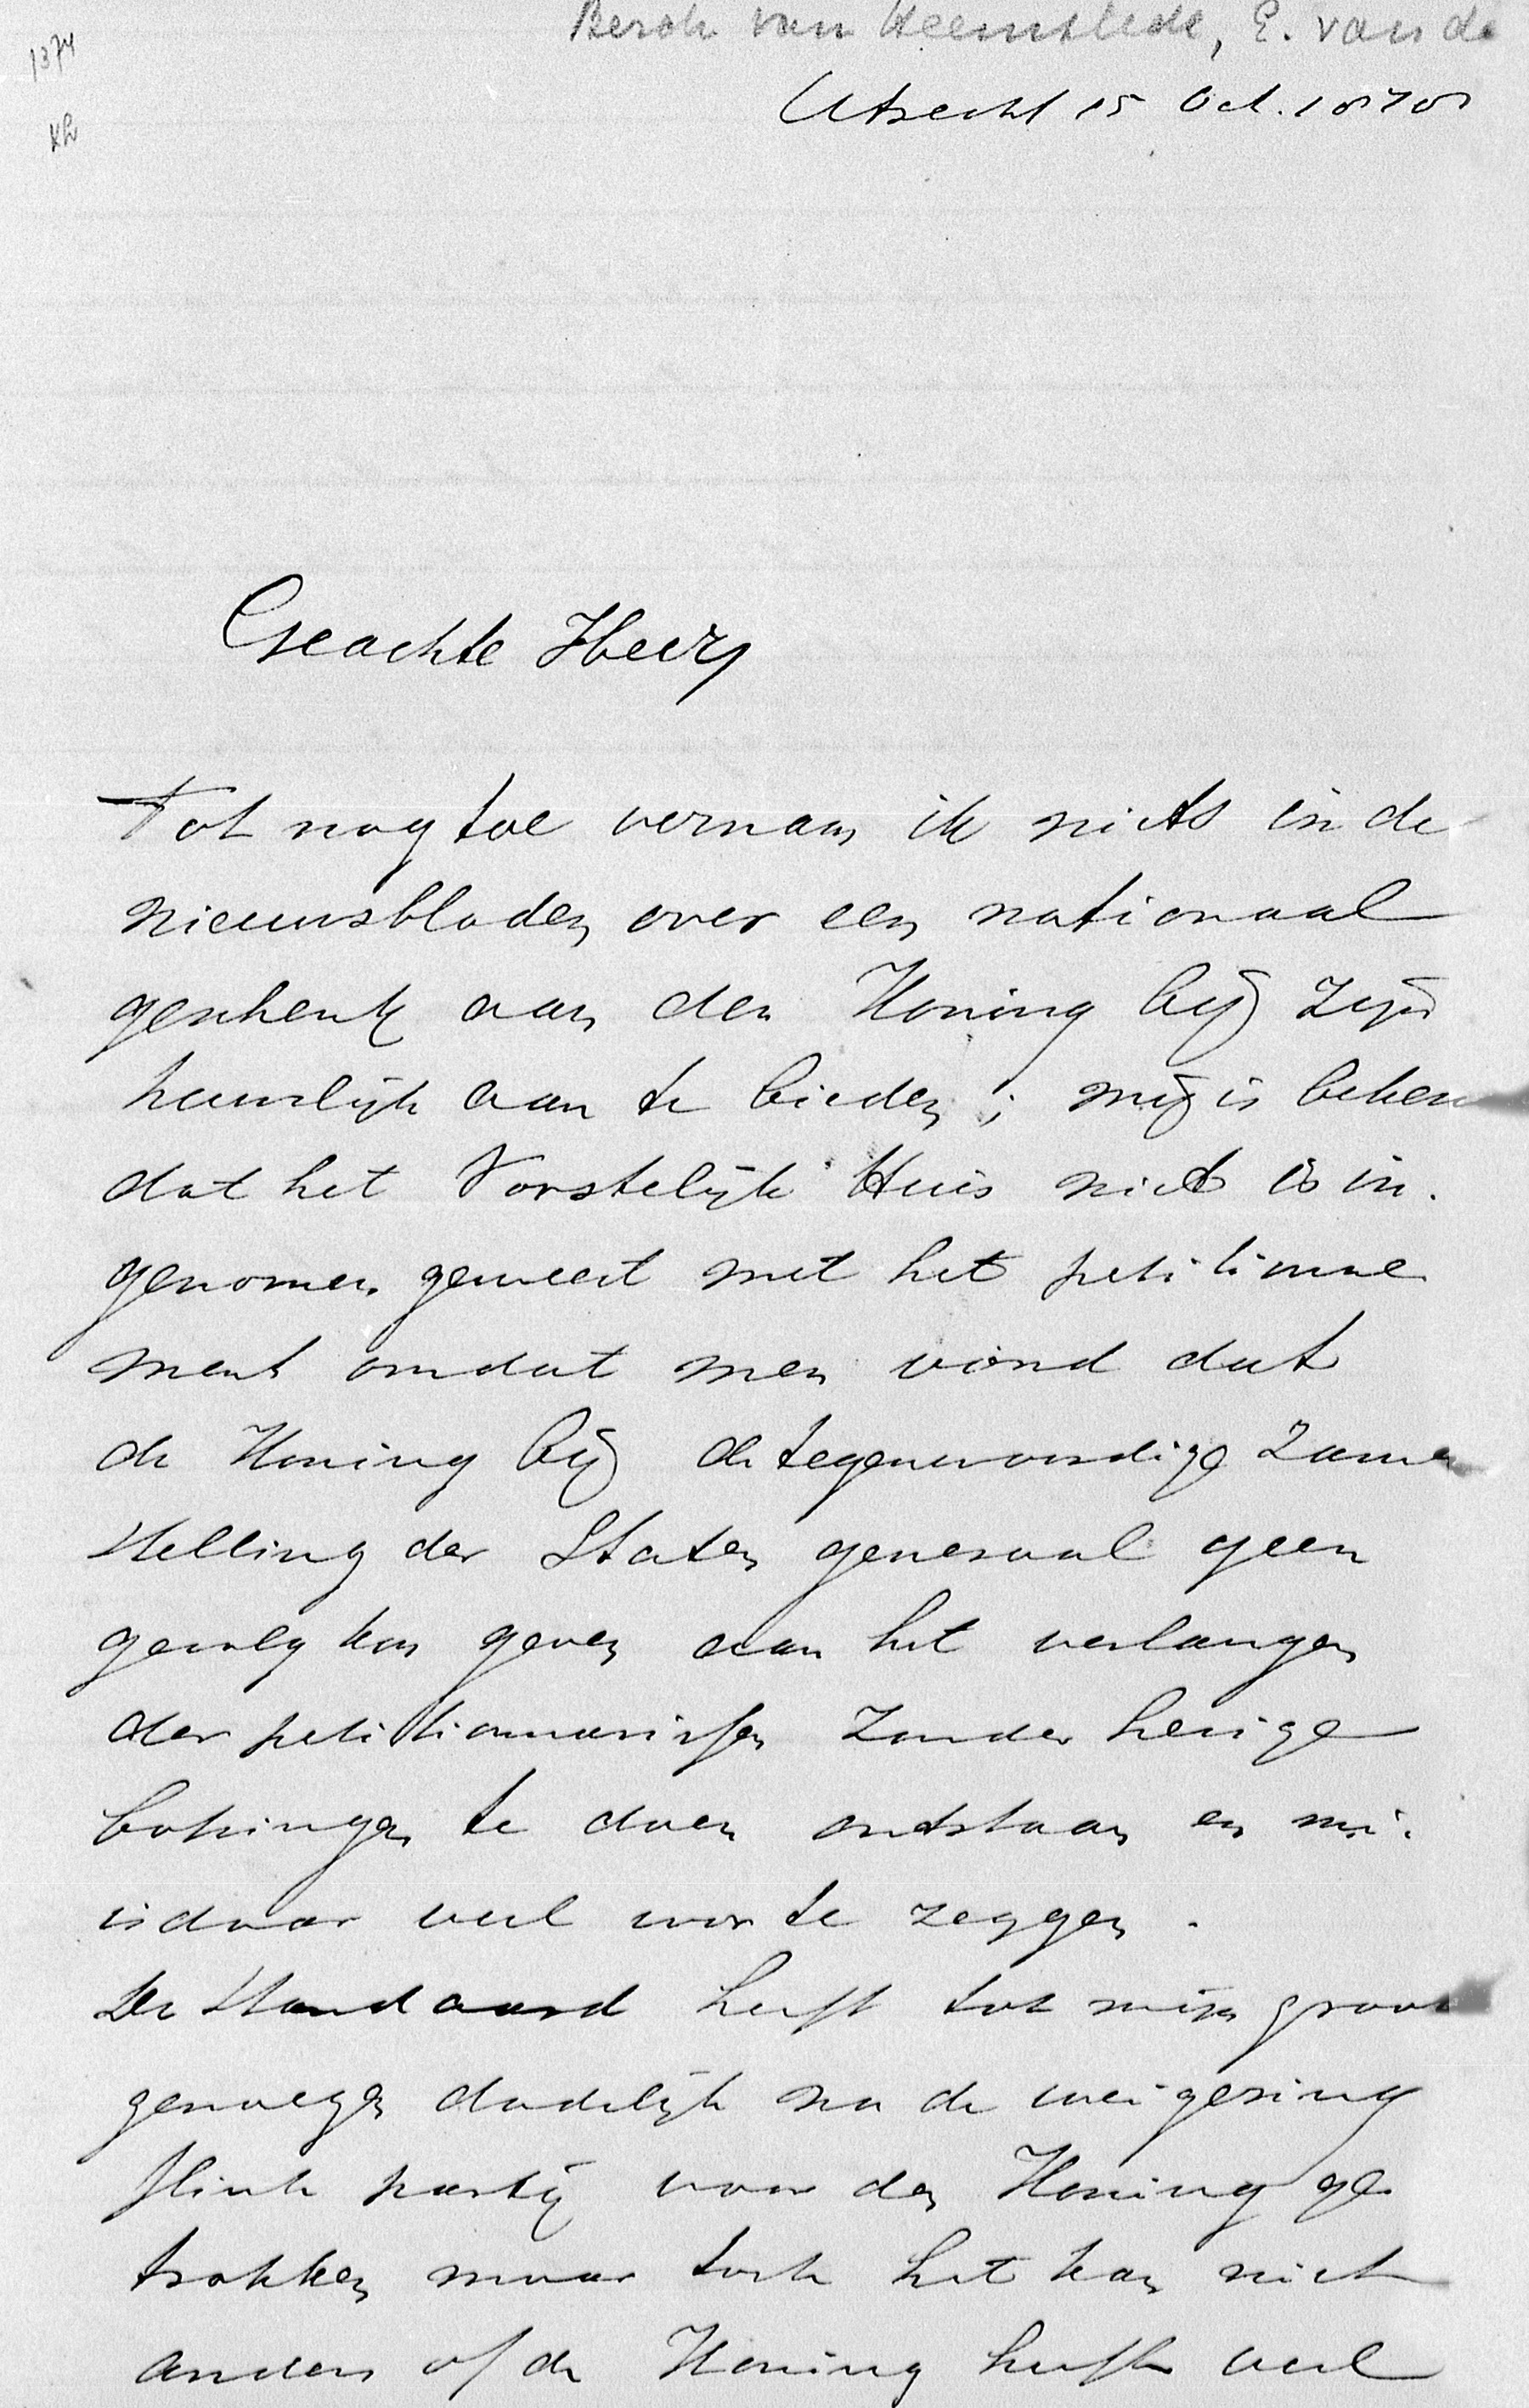 1374
Berch van Heemstede, E. van de
Utrecht 15 Oct. 1878
Geachte Heer
Tot nog toe vernam ik niets in de
nieuwsbladen over een nationaal
geschenk aan den Koning bij zijn
huwelijk aan te bieden; mij is beken
dat het Vorstelijk Huis niet is in.
genomen geweest met het petitionne
ment omdat men vond dat
de Koning bij de tegenwoordige zamen
stelling der Staten generaal geen
gevolg kon geven aan het verlangen
der petitionarissen zonder hevige
botsingen te doen ontstaan en mi.
is daar veel voor te zeggen.
De Standaard heeft tot mijn groot
genoegen dadelijk na de weigering
flink partij voor den Koning ge
trokken maar toch het kan niet
anders of de Koning heeft veel